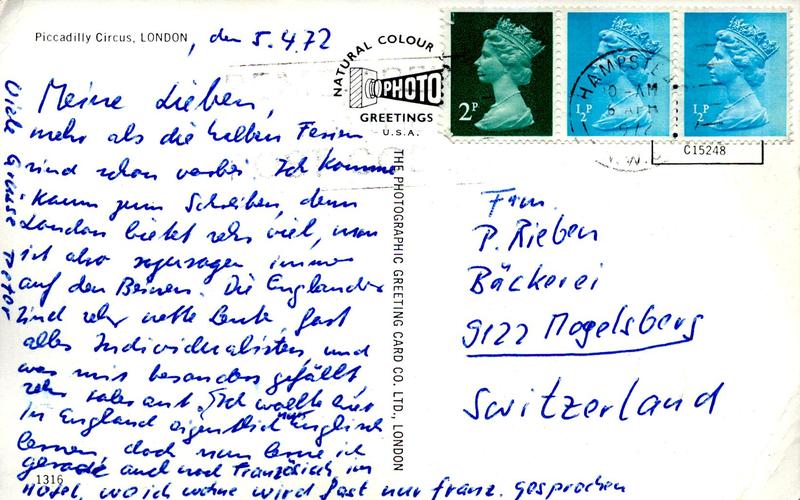 Piccadilly Circus, LONDON, den 5.4.72
NATURAL COLOUR
PHOTO
GREETINGS
U.S.A.
2P
½P
½P
HAMPSTE
-AM
6 APR
1972
N.W.
C15248
Meine Lieben,
mehr als die halben Ferien
sind schon vorbei. Ich komme
kaum zum Schreiben, denn
London bietet sehr viel, man
ist also sozusagen immer
auf den Beinen. Die Engländer
sind sehr nette Leute, fast
alles Individualisten, und
was mir besonders gefällt,
sehr tolerant. Ich wollte hier
in England eigentlich nur Englisch
lernen, doch nun lerne ich
gerade auch noch Französisch, im
Hotel, wo ich wohne wird fast nur franz. gesprochen
Viele Grüsse Peter
1316
THE PHOTOGRAPHIC GREETING CARD CO. LTD., LONDON
Fam.
P. Rieben
Bäckerei
9122 Mogelsberg
Switzerland